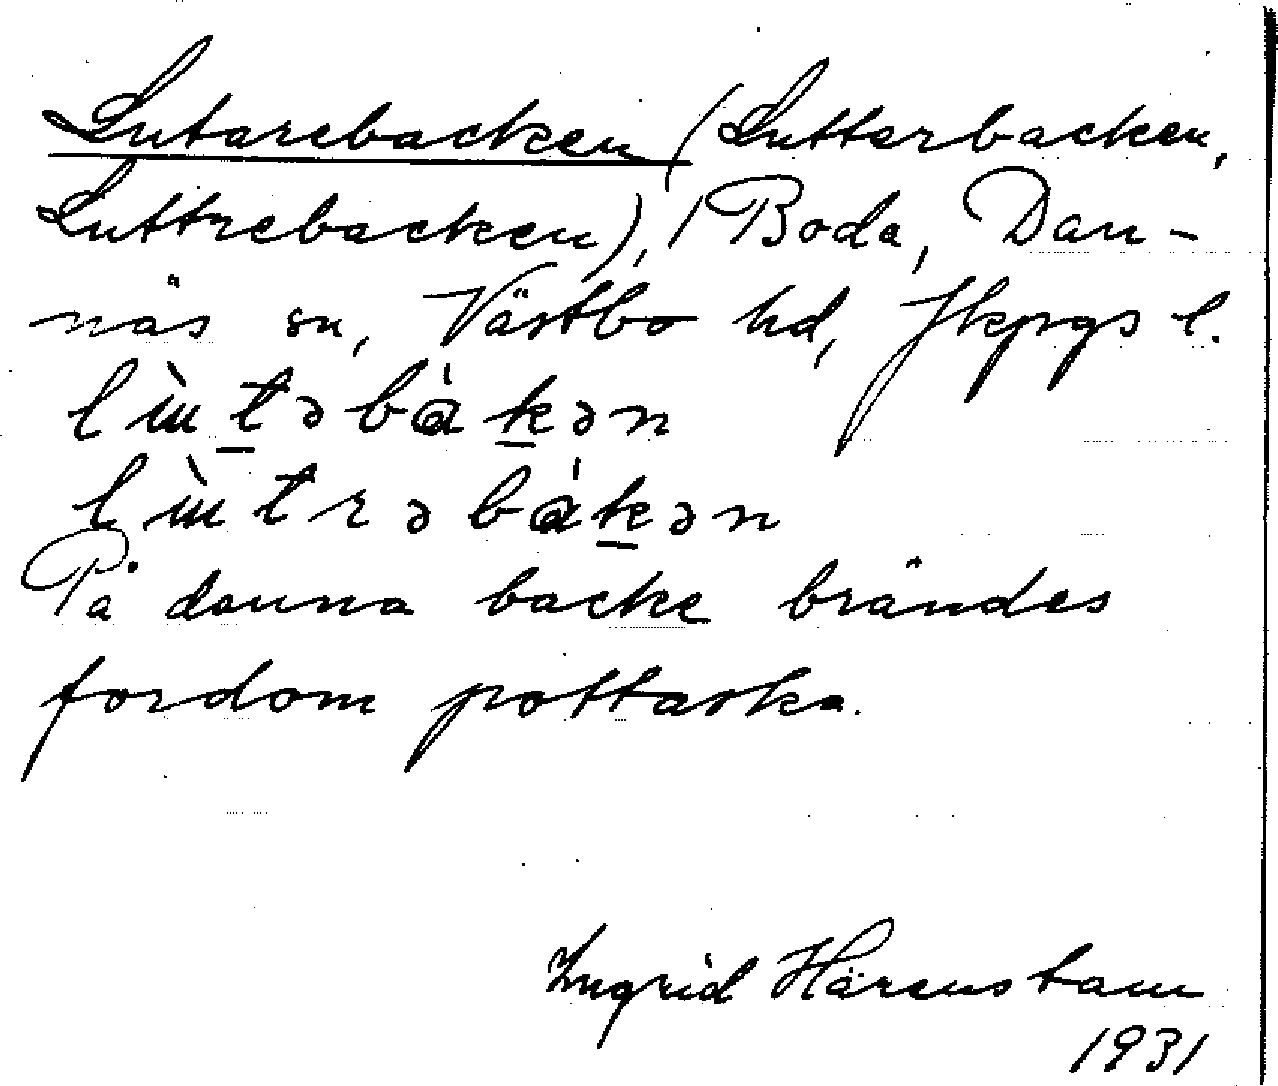 Lutarebacken (Lutterbacken,
Luttrebacken), Boda, Dan-
näs sn, Västbo hd, Jkpgs l.
På denna backe brändes
fordom pottaska.
Ingrid Härenstam
1931